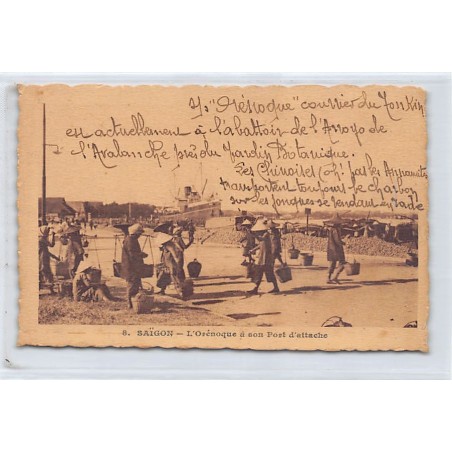 L'"Orénoque" courrier du Tonkin
est actuellement à l'abattoir de l'Arroyo de
l'Avalanche près du Jardin Botanique.
Les Chinois (oh! pas les Annamites)
transportent toujours le charbon
sur les jonques se rendant en rade
8. SAÏGON - L'Orénoque à son Port d'attache